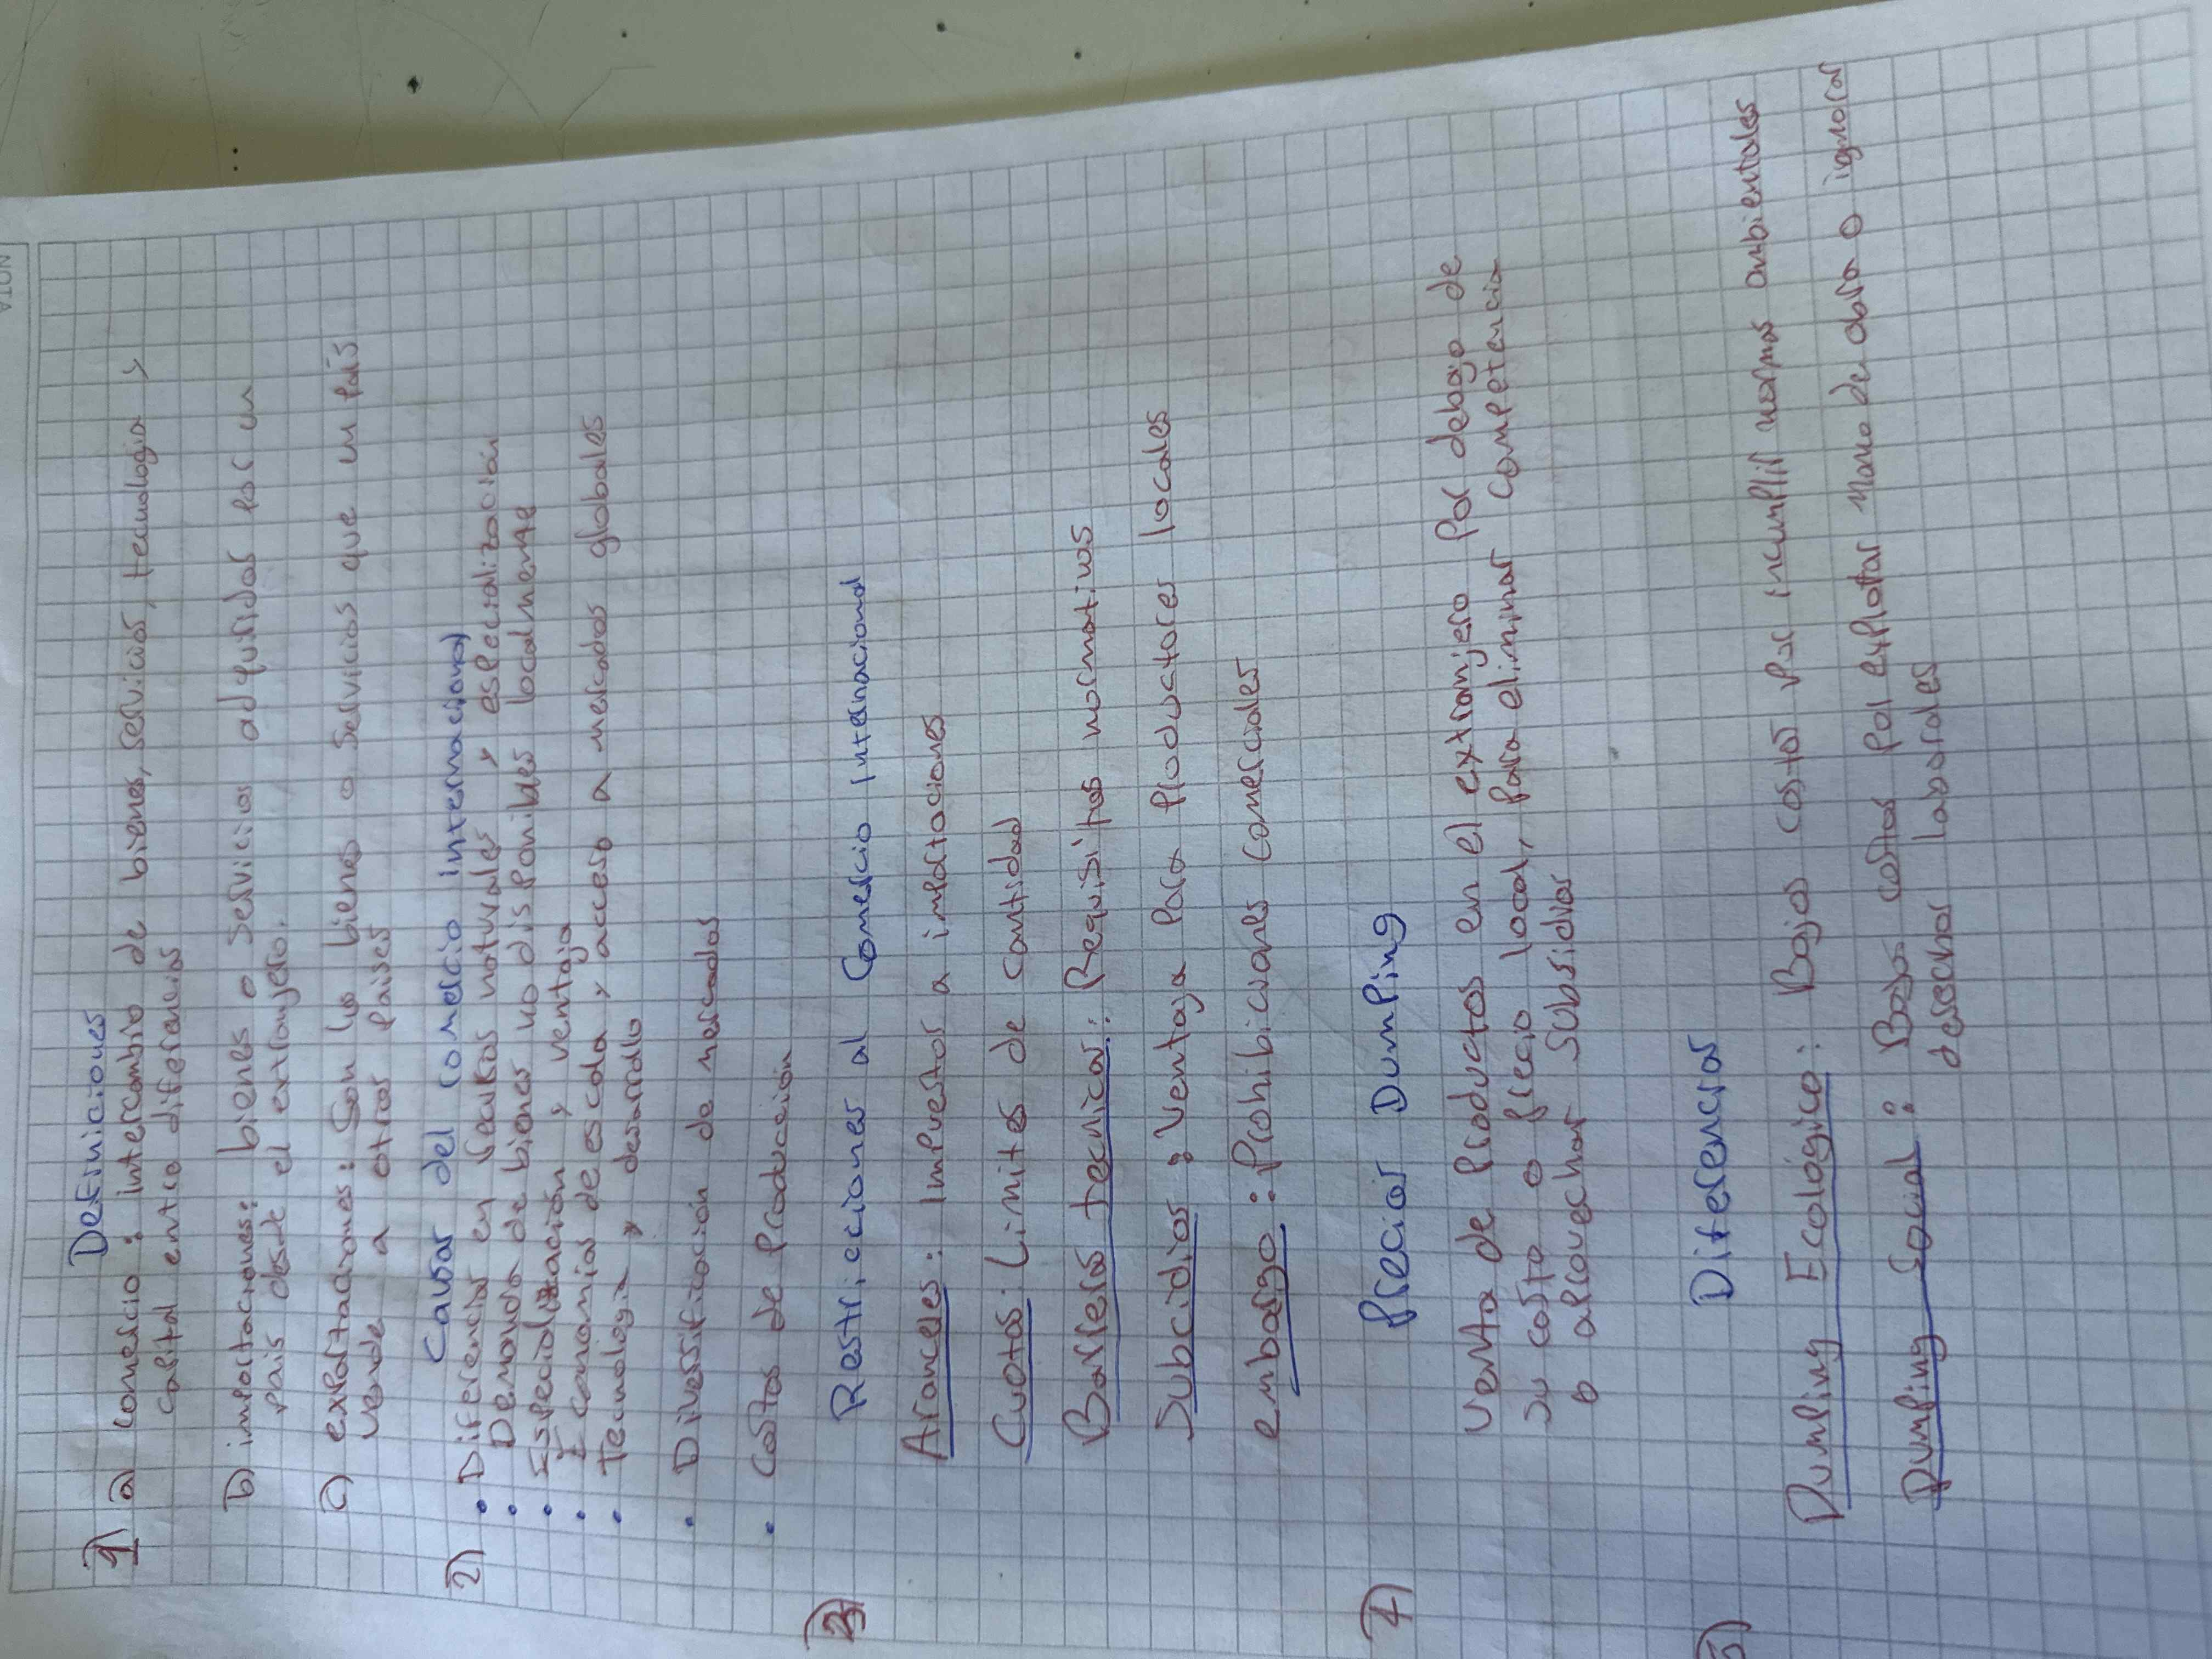 Definiciones
1) a) Comercio : intercambio de bienes, servicios, tecnologia y
capital entre diferencias
b) importaciones: bienes o servicios adquiridos por un
pais desde el extranjero.
c) exportaciones: Son los bienes o servicios que un país
vende a otros paises
2) Causas del comercio internacional
• Diferencias en recursos naturales y especialización
• Demanda de bienes no disponibles localmente
• Especialización y ventaja
• Economias de escala y acceso a mercados globales
• tecnologia y desarrollo
• Diversificación de mercados
• Costos de Producción
3) Restricciones al Comercio Internacional
Aranceles: Impuestos a importaciones
Cuotas: Limites de cantidad
Barreras tecnicas: Requisitos normativos
Subcidios: ventaja para productores locales
embargo: Prohibiciones comerciales
4) Precios Dumping
Venta de Productos en el extranjero por debajo de
su costo o precio local, para eliminar competencia
o aprovechar subsidios
5) Diferencias
Dumping Ecológico: Bajos costos por incumplir normas ambientales
Dumping Social: Bajos costos por explotar mano de obra o ignorar
derechos laborales